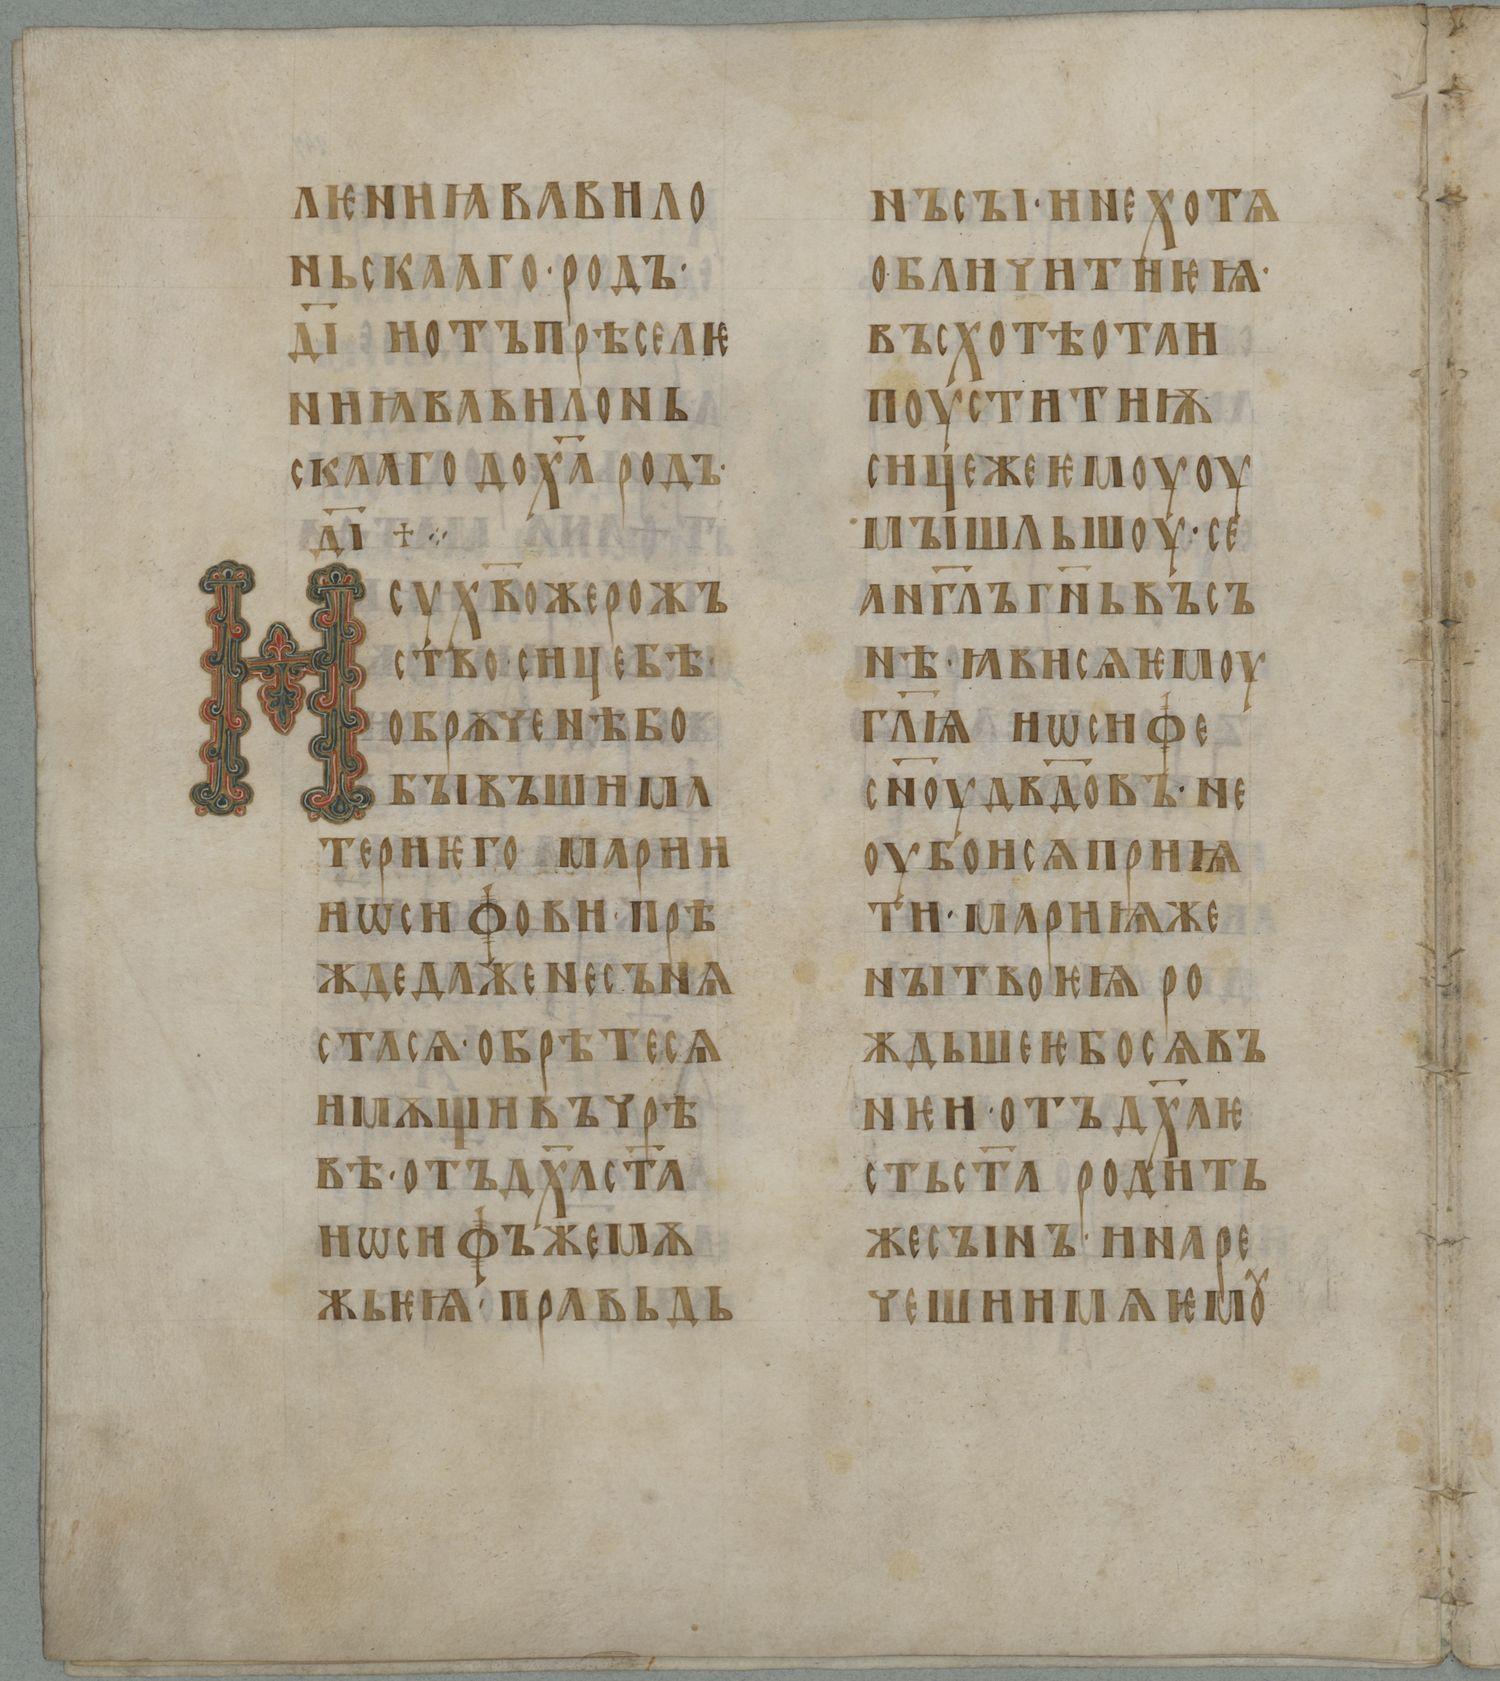 лѥниꙗвавило
ньскааго·родъ·
д҃і иотъпрѣселѥ
ниꙗвавилонь
скаагодох҃а родъ·
д҃і
Исух҃вожерожъ
ство·сицебѣ·
обрѫченѣбо
бꙑвъшима
териѥго марии
иѡсифови·прѣ
ждедаженесънѧ
стасѧ·обрѣтесѧ
имѫщивъчрѣ
вѣ·отъдх҃аст҃а
иѡсифъжемѫ
жьѥѩ·правьдь
нъсꙑ·инехотѧ
обличитиѥѩ·
въсхотѣотаи
поуститиѭ
сицежеѥмоуоу
мꙑшльшоу·се
анг҃лъгн҃ьвъсъ
нѣ·ꙗвисѧѥмоу
гл҃ѩ иѡсифе
сн҃оудвд҃овъ·не
оубоисѧприѩ
ти·мариѭже
нꙑтвоѥѩ ро
ждьшеѥбосѧвъ
нѥи·отъдх҃аѥ
стьст҃а родить
жесꙑнъ·инаре
чешиимѧѥмꙋ